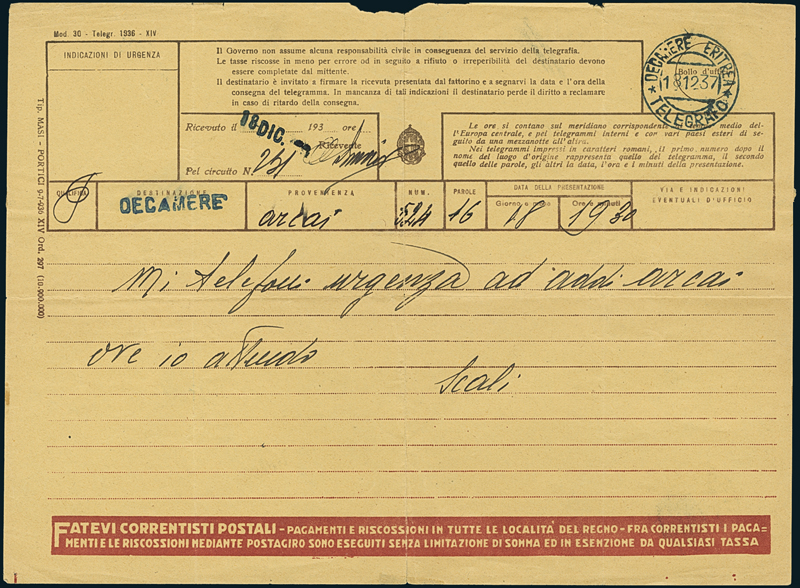 Mod. 30 - Telegr. 1936 - XIV
INDICAZIONI DI URGENZA
Il Governo non assume alcuna responsabilità civile in conseguenza del servizio della telegrafia.
Le tasse riscosse in meno per errore od in seguito a rifiuto o irreperibilità del destinatario devono
essere completate dal mittente.
Il destinatario è invitato a firmare la ricevuta presentata dal fattorino e a segnarvi la data e l'ora della
consegna del telegramma. In mancanza di tali indicazioni il destinatario perde il diritto a reclamare
in caso di ritardo della consegna.
DECAMERE ERITREA
Bollo d'uff
TELEGRAFO
Ricevuto il 18 DIC. 193 ore
Ricevente
Pel circuito N.
Le ore si contano sul meridiano corrispondente medio del-
l'Europa centrale, e pei telegrammi interni e con vari paesi esteri di se-
guito da una mezzanotte all'altra.
Nei telegrammi impressi in caratteri romani, il primo numero dopo il
nome del luogo d'origine rappresenta quello del telegramma, il secondo
quello delle parole, gli altri la data, l'ora e i minuti della presentazione.
QUALIFICA
DESTINAZIONE
PROVENIENZA
NUM.
PAROLE
DATA DELLA PRESENTAZIONE
Giorno e mese
Ore e minuti
VIA E INDICAZIONI
EVENTUALI D'UFFICIO
DECAMERE
arcai
524
16
18
1930
Mi telefoni urgenza ad addi arcai
ove io attendo
Scali
FATEVI CORRENTISTI POSTALI - PAGAMENTI E RISCOSSIONI IN TUTTE LE LOCALITÀ DEL REGNO - FRA CORRENTISTI I PAGA=
MENTI E LE RISCOSSIONI MEDIANTE POSTAGIRO SONO ESEGUITI SENZA LIMITAZIONE DI SOMMA ED IN ESENZIONE DA QUALSIASI TASSA
Tip. MASI - PORTICI 9-7-936 XIV Ord. 297 (10.900.000)